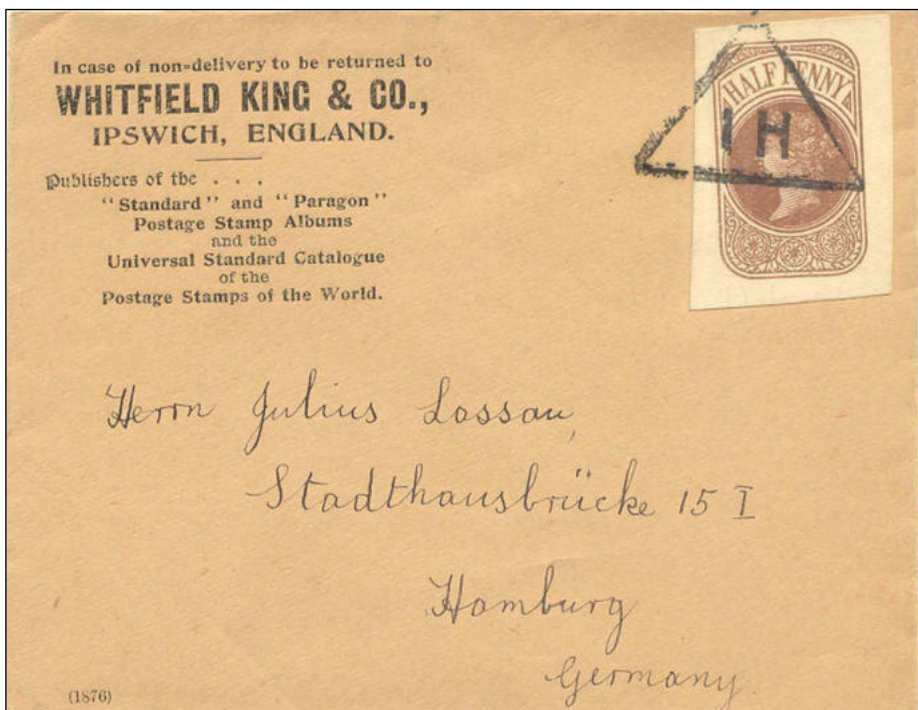 In case of non-delivery to be returned to
WHITFIELD KING & CO.,
IPSWICH, ENGLAND.
Publishers of the . . .
"Standard" and "Paragon"
Postage Stamp Albums
and the
Universal Standard Catalogue
of the
Postage Stamps of the World.
HALF PENNY
I H
Herrn Julius Lossau,
Stadthausbrücke 15 I
Hamburg
Germany.
(1876)